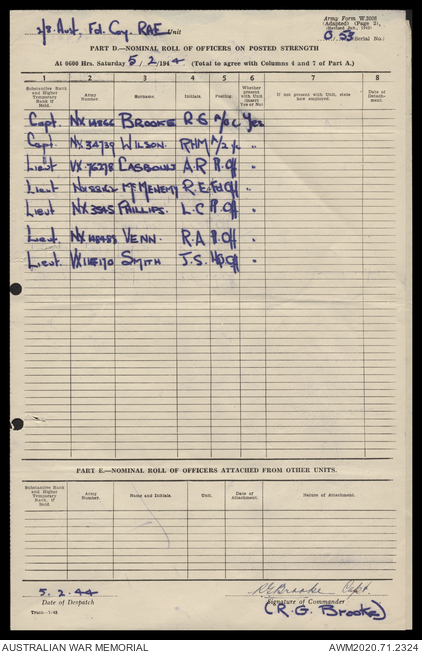 2/8 Aust. Fd. Cy. RAE Unit
Army Form W.3008
(Adapted) (Page 2),
(Revised Jan., 1943)
(Serial No.)
PART D.—NOMINAL ROLL OF OFFICERS ON POSTED STRENGTH
At 0600 Hrs. Saturday 5/2/1944 (Total to agree with Columns 4 and 7 of Part A.)
1 2 3 4 5 6 7 8
Substantive Rank and Higher Temporary Rank if Held. Army Number. Surname. Initials. Posting. Whether present with Unit (insert Yes or No) If not present with Unit, state how employed. Date of Detachment.
Capt. BROOKE R G O C Yes
Capt. NX34739 WILSON. RHM 2 i/c "
Lieut VX76278 CASBOULT A.R Pl.Off "
Lieut McMENEMY R.E. Off "
Lieut PHILLIPS. L.C Pl.Off "
Lieut. VENN. R.A Pl.Off "
Lieut. SMITH J.S. HQ Off "
PART E.—NOMINAL ROLL OF OFFICERS ATTACHED FROM OTHER UNITS.
Substantive Rank and Higher Temporary Rank, if Held. Army Number. Name and Initials. Unit. Date of Attachment. Nature of Attachment.
5.2.44 RGBrooke Capt.
Date of Despatch Signature of Commander
(R.G. Brooke)
AUSTRALIAN WAR MEMORIAL AWM2020.71.2324